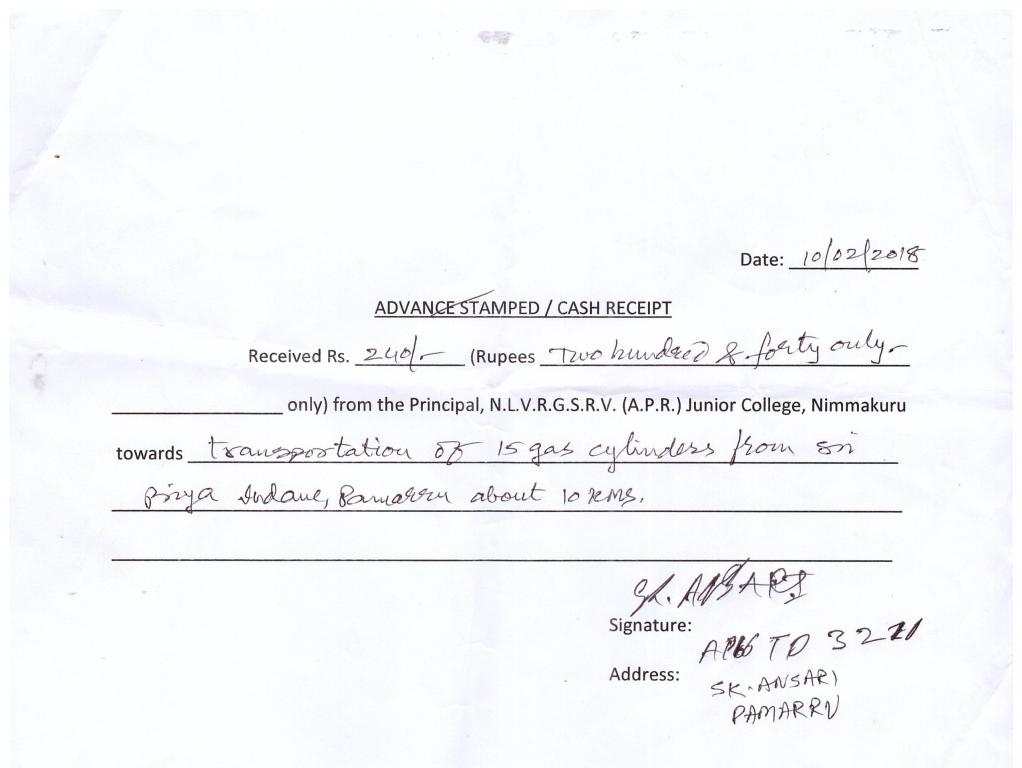 Date: 10/02/2018
ADVANCE STAMPED / CASH RECEIPT
Received Rs. 240/- (Rupees Two hundred & forty only-
only) from the Principal, N.L.V.R.G.S.R.V. (A.P.R.) Junior College, Nimmakuru
towards transportation of 15 gas cylinders from sri
priya Indane, Pamarru about 10 KMS.
SK. ANSARI
Signature:
TD 32
Address:
SK. ANSARI
PAMARRU